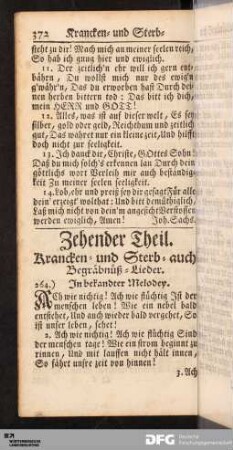 372 Krancken- und Sterb-
steht zu dir! Mach mich an meiner seelen reich,
So hab ich gnug hier und ewiglich.
11. Der zeitlich'n ehr will ich gern ent-
bähren, Du wollst mich nur des ewig'n
g'währ'n, Das du erworben hast Durch dei-
nen herben bittern tod: Das bitt ich dich,
mein HERR und GOTT!
12. Alles, was ist auf dieser welt, Es sey
silber, gold oder geld, Reichthum und zeitlich
gut, Das währet nur ein kleine zeit, Und hilfft
doch nicht zur seeligkeit.
13. Ich danck dir, Christe, GOttes Sohn!
Daß du mich solch's erkennen lan Durch dein
göttlichs wort Verleih mir auch beständig-
keit Zu meiner seelen seeligkeit.
14. Lob, ehr und preiß sey dir gesagt Für alle
dein' erzeigt' wolthat: Und bitt demüthiglich,
Laß mich nicht von dein'm angesicht Verstossen
werden ewiglich, Amen! Joh. Sachs.
Zehender Theil.
Krancken- und Sterb- auch
Begräbnüß-Lieder.
264.) In bekandter Melodey.
Ach wie nichtig! Ach wie flüchtig Ist der
menschen leben! Wie ein nebel bald
entstehet, Und auch wieder bald vergehet, So
ist unser leben, sehet!
2. Ach wie nichtig! Ach wie flüchtig Sind
der menschen tage! Wie ein strom beginnt zu
rinnen, Und mit lauffen nicht hält innen,
So fährt unsre zeit von hinnen!
3. Ach
DFG Deutsche
Forschungsgemeinschaft